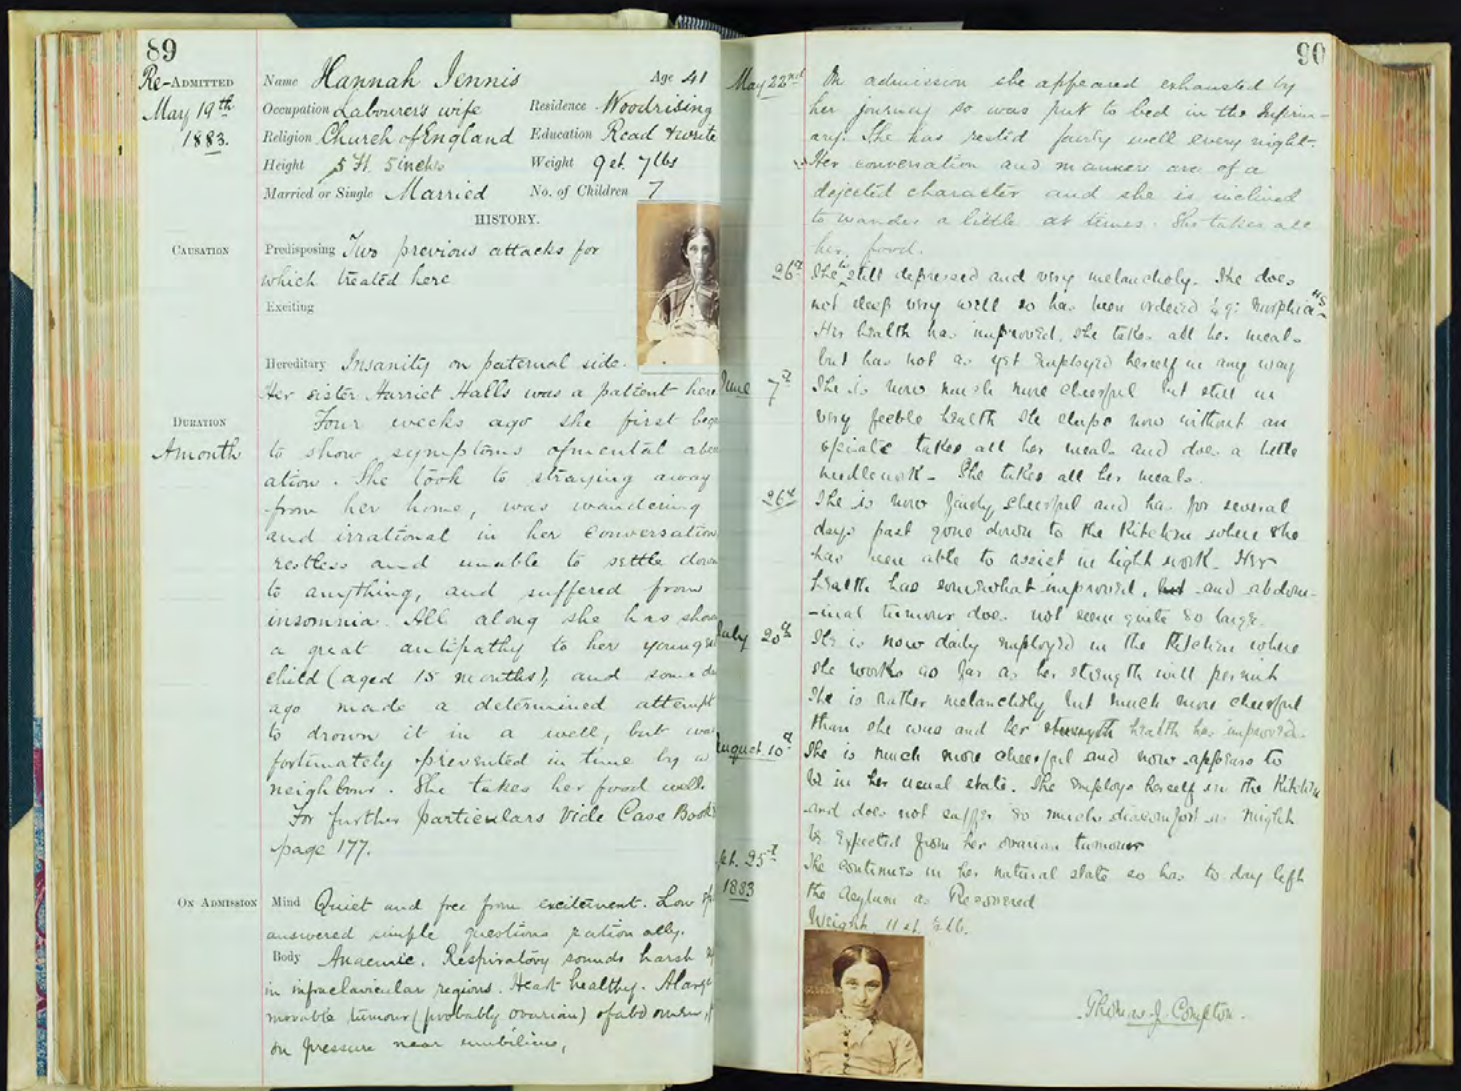 89
Re-Admitted
May 19th
1883.
Name Hannah Jennis Age 41
Occupation Labourer's wife Residence Woodrising
Religion Church of England Education Read & write
Height 5 Ft. 5 inches Weight 9 st. 7 lbs
Married or Single Married No. of Children 7
HISTORY.
Causation
Predisposing Two previous attacks for
which treated here
Exciting
Hereditary Insanity on paternal side.
Her sister Harriet Halls was a patient here
Duration
A month
Four weeks ago she first
to show symptoms of mental aber
ation. She took to straying away
from her home, was wandering
and irrational in her conversation
restless and unable to settle down
to anything, and suffered from
insomnia. All along she has
a great antipathy to her young
child (aged 15 months), and some
ago made a determined attempt
to drown it in a well, but was
fortunately prevented in time by a
neighbour. She takes her food well.
For further particulars Vide Case Book
page 177.
On Admission
Mind Quiet and free from excitement. Low
answered simple questions rationally.
Body Anaemic. Respiratory sounds harsh
in infraclavicular regions. Heart healthy. A large
movable tumour (probably ovarian) of abdomen,
on pressure near umbilicus,
90
May 22nd On admission she appeared exhausted by
her journey so was put to bed in the Infirm-
ary. She has rested fairly well every night.
Her conversation and manners are of a
dejected character and she is inclined
to wander a little at times. She takes all
her food.
26th She is still depressed and very melancholy. She does
not sleep very well so has been ordered ¼ gr: Morphia HS.
Her health has improved. She takes all her meals
but has not as yet employed herself in any way
June 7th She is now much more cheerful but still in
very feeble health She sleeps now without an
opiate takes all her meals and does a little
needlework - She takes all her meals.
26th She is now fairly cheerful and has for several
days past gone down to the Kitchen where she
has been able to assist in light work. Her
health has somewhat improved, but and abdom-
-inal tumour does not seem quite so large.
July 20th She is now daily employed in the Kitchen where
she works as far as her strength will permit
She is rather melancholy but much more cheerful
than she was and her strength health has improved.
August 10th She is much more cheerful and now appears to
be in her usual state. She employs herself in the Kitchen
and does not suffer so much discomfort as might
be expected from her ovarian tumour
Sept. 25th
1883
She continues in her natural state so has to day left
the Asylum as Recovered
Weight 11 st. ½ lb.
Thomas J. Compton.